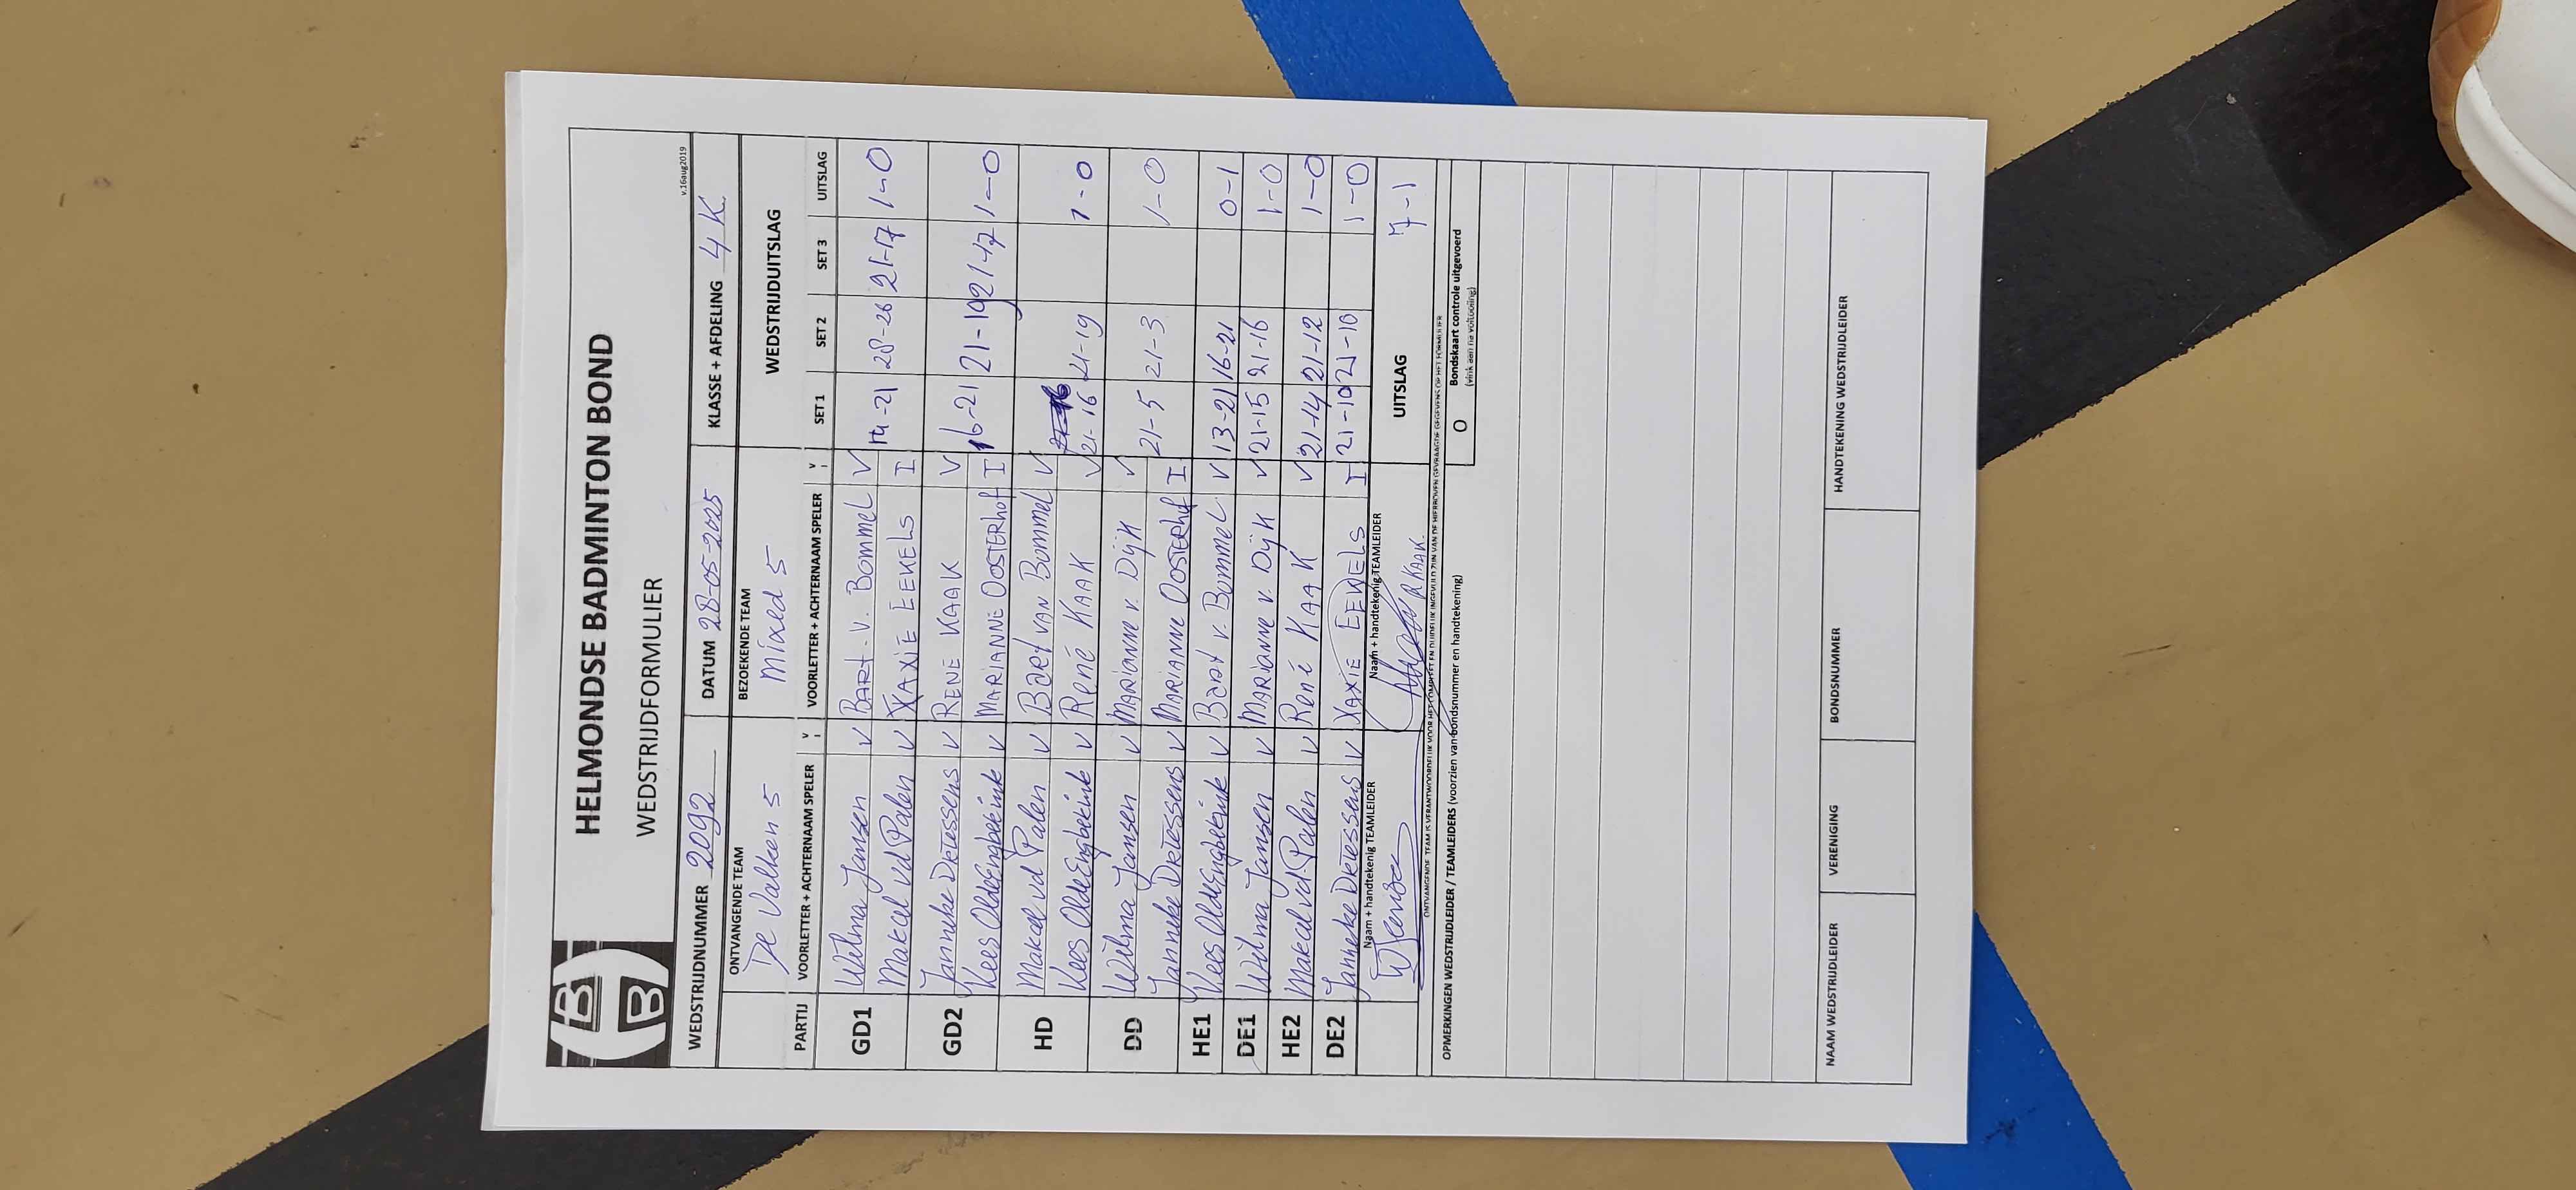 HELMONDSE BADMINTON BOND
WEDSTRIJDFORMULIER
v.16aug2019
WEDSTRIJDNUMMER 2092 DATUM 28-05-2025 KLASSE + AFDELING 4K
ONTVANGENDE TEAM BEZOEKENDE TEAM WEDSTRIJDUITSLAG
De Valken 5 mixed 5
PARTIJ VOORLETTER + ACHTERNAAM SPELER V I VOORLETTER + ACHTERNAAM SPELER V I SET 1 SET 2 SET 3 UITSLAG
GD1 Wilma Jansen V BART v. Bommel V 14-21 28-26 21-17 1-0
Makcel vd Palen V XAXIE EEKELS I
GD2 Janneke Driessens V RENE KAAK V 16-21 21-19 21-17 1-0
Kees OldeEngbekink V MARIANNE OOSTERhof I
HD Makcel vd Palen V Bart VAN Bommel V 21-16 21-19 1-0
Kees OldeEngbekink V René KAAK V
DD Wilma Jansen V MARIANNE v. Dijk V 21-5 21-3 1-0
Janneke Driessens V MARIANNE OOSTERhof I
HE1 Kees OldeEngbekink V Bart v. Bommel V 13-21 16-21 0-1
DE1 Wilma Jansen V MARIANNE v. Dijk V 21-15 21-16 1-0
HE2 Makcel vd Palen V René KAAK V 21-14 21-12 1-0
DE2 Janneke Driessens V XAXIE EEKELS I 21-10 21-10 1-0
Naam + handtekenig TEAMLEIDER Naam + handtekenig TEAMLEIDER UITSLAG 7-1
R KAAK
ONTVANGENDE TEAM IS VERANTWOORDELIJK VOOR HET COMPLEET EN DUIDELIJK INGEVULD ZIJN VAN DE HIERBOVEN GEVRAAGDE GEGEVENS OP HET FORMULIER
OPMERKINGEN WEDSTRIJDLEIDER / TEAMLEIDERS (voorzien van bondsnummer en handtekening) O Bondskaart controle uitgevoerd
(vink aan na voltooiing)
NAAM WEDSTRIJDLEIDER VERENIGING BONDSNUMMER HANDTEKENING WEDSTRIJDLEIDER